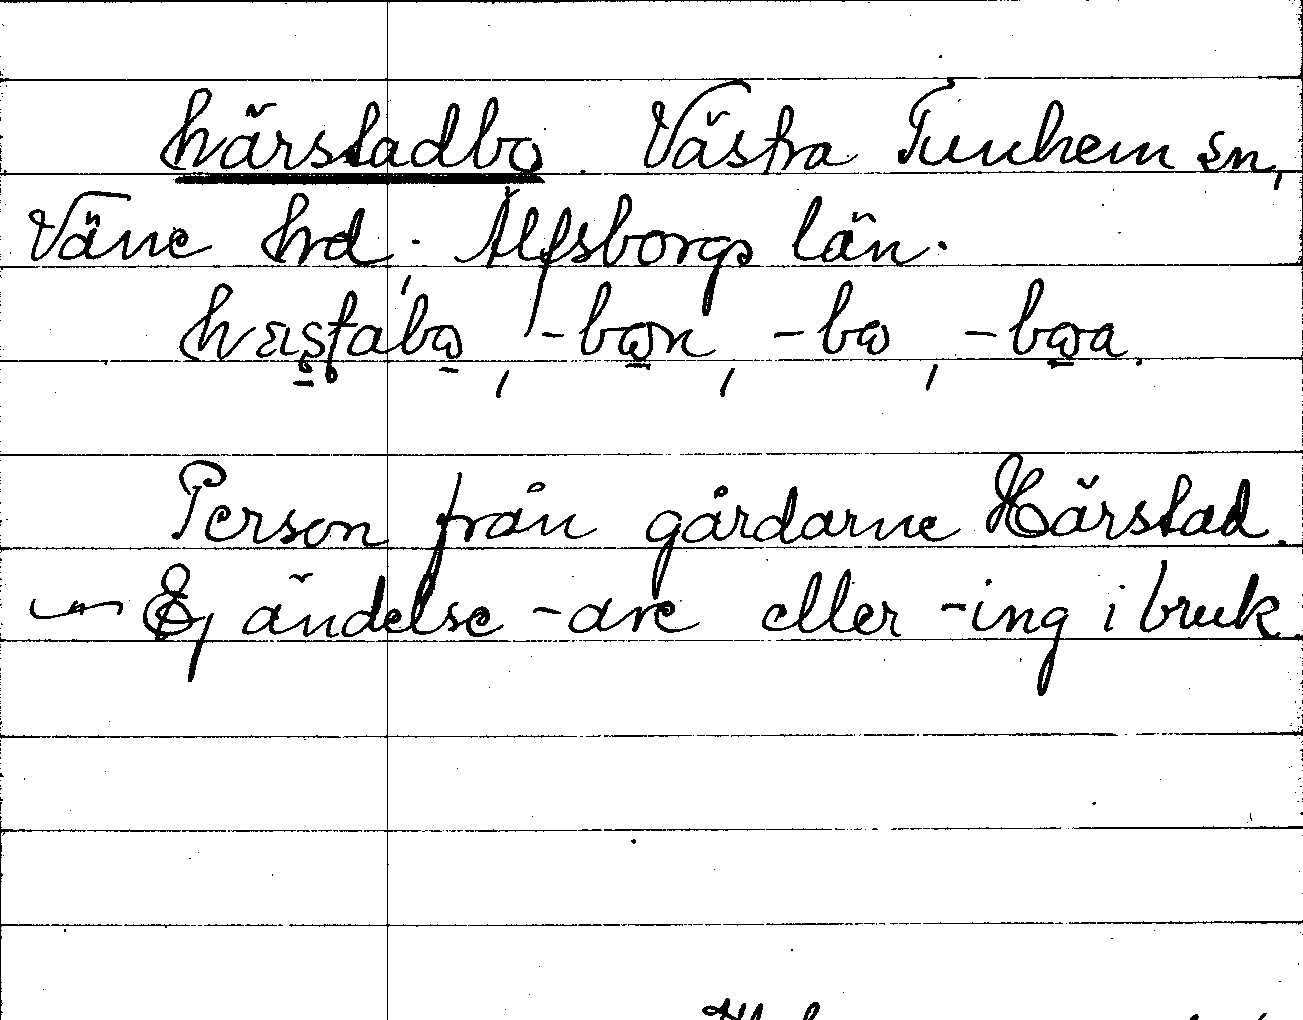 härstadbo. Västra Tunhem sn,
Väne hrd, Älfsborgs län.
hæṣṭabω, -bωn, -bω, -bωa.
Person från gårdarne Härstad.
— Ej ändelse -are eller -ing i bruk.